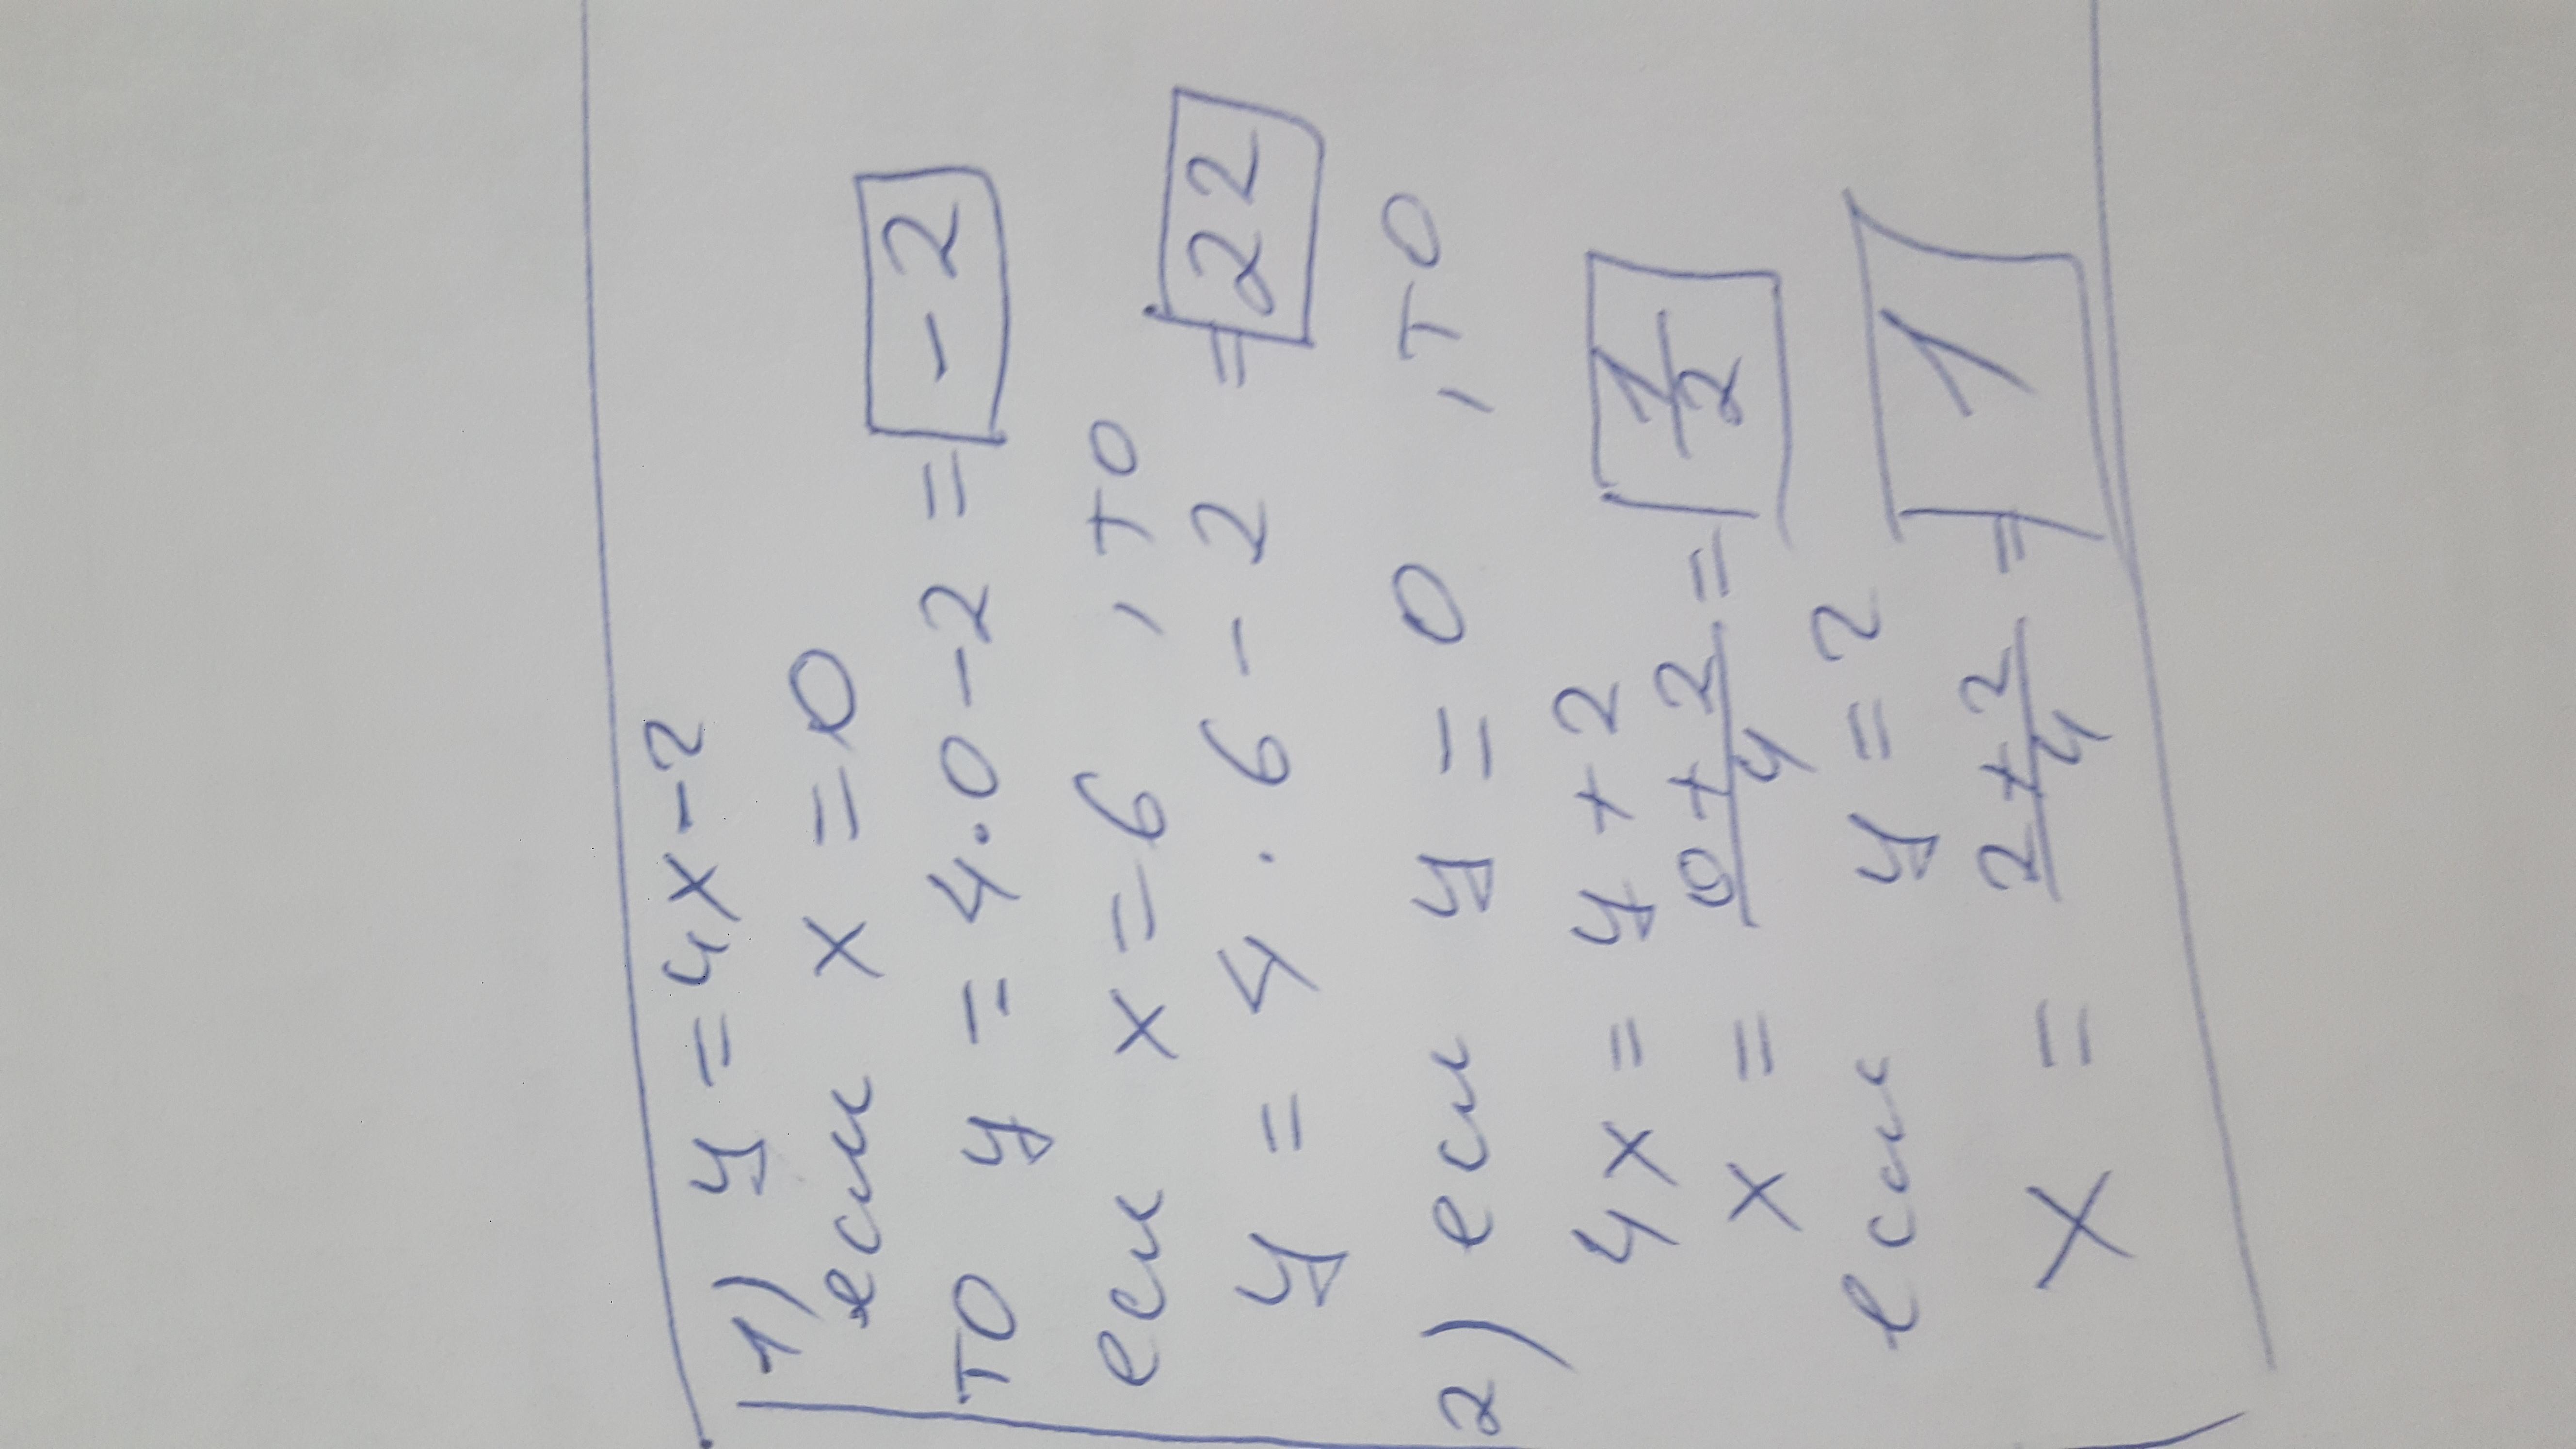 1) y = 4x - 2
если x = 0
то y = 4 · 0 - 2 = -2
если x = 6 , то
y = 4 · 6 - 2 = 22
2) если y = 0 , то
4x = y + 2
x = (0 + 2)/4 = 1/2
если y = 2
x = (2 + 2)/4 = 1